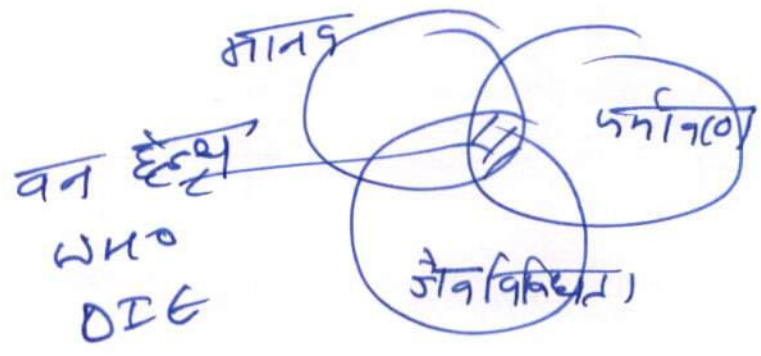 मानव
पर्यावरण
वन हेल्थ
WHO
OIE
जैव विविधता